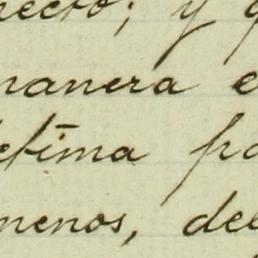 recto; y
manera e
etima pa
menos, del